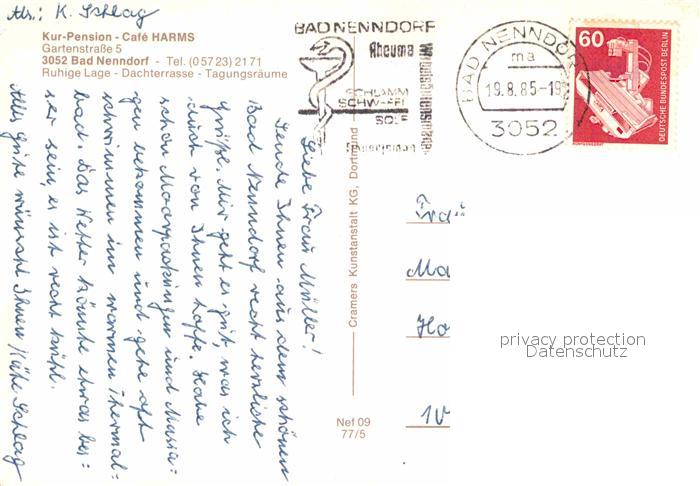 Abs.: K. Schlag
Kur-Pension - Café HARMS
Gartenstraße 5
3052 Bad Nenndorf - Tel. (05723) 2171
Ruhige Lage - Dachterrasse - Tagungsräume
BAD NENNDORF
Rheuma
SCHLAMM
SCHWEFEL
SOLE
BAD NENNDORF
ma
19.8.85-19
3052
60
DEUTSCHE BUNDESPOST BERLIN
Liebe Frau Müller!
Sende Ihnen aus dem schönen
Bad Nenndorf recht herzliche
Grüße. Mir geht es gut, was ich
auch von Ihnen hoffe. Habe
schon Moorpackungen und Massa=
gen bekommen und gehe oft
schwimmen im warmen Thermal=
bad. Das Wetter könnte etwas bes=
ser sein, es ist recht kühl.
Alles Gute wünscht Ihnen Käthe Schlag
Cramers Kunstanstalt KG, Dortmund
Nef 09
77/5
Frau
Ma
Ho
privacy protection
Datenschutz